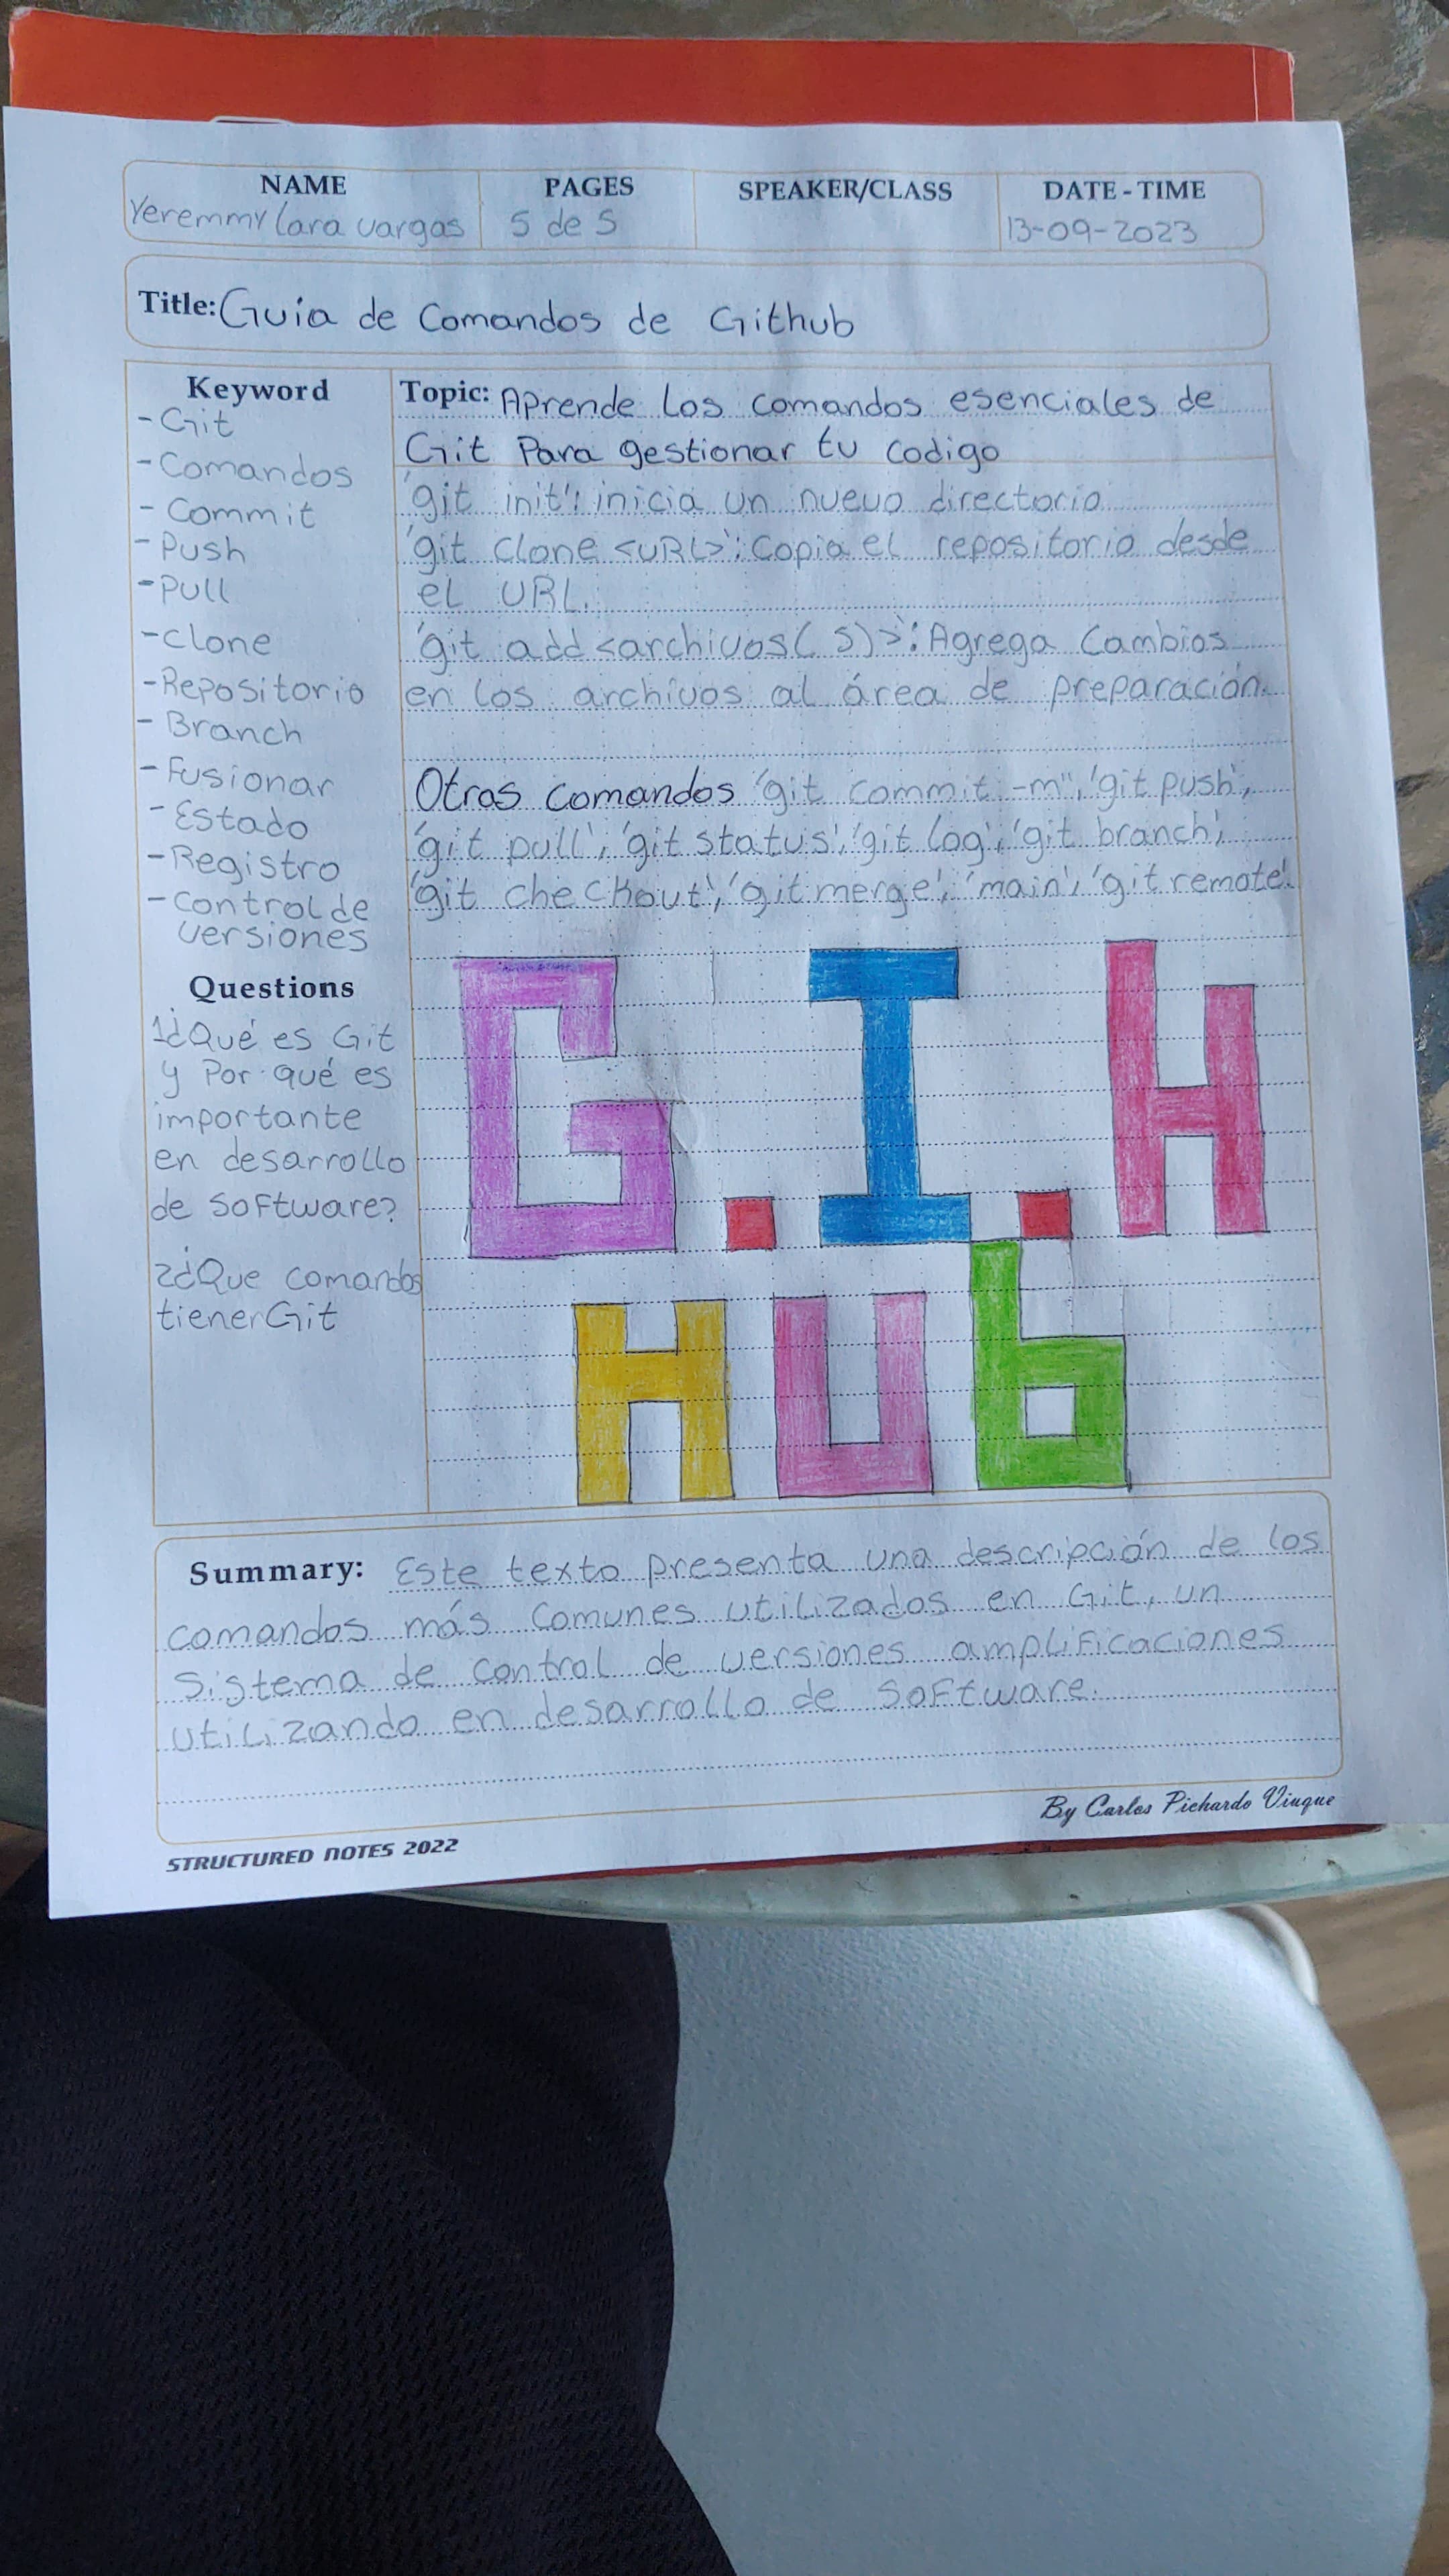 NAME
PAGES
SPEAKER/CLASS
DATE - TIME
Yeremmy Lara vargas
5 de 5
13-09-2023
Title: Guia de Comandos de Github
Keyword
- Git
- Comandos
- Commit
- Push
- Pull
- Clone
- Repositorio
- Branch
- Fusionar
- Estado
- Registro
- Control de
versiones
Questions
1¿Qué es Git
y Por qué es
importante
en desarrollo
de software?
2¿Que comandos
tiener Git
Topic: Aprende Los comandos esenciales de
Git Para gestionar tu codigo
'git init': inicia un nuevo directorio
'git clone <URL>': Copia el repositorio desde
el URL.
'git add <archivos(s)>': Agrega Cambios
en los archivos al área de preparación.
Otros comandos 'git commit -m", 'git push',
'git pull', 'git status', 'git log', 'git branch',
'git checkout', 'git merge', 'main', 'git remote'.
G.I.H
HUb
Summary: Este texto presenta una descripción de los
comandos más comunes utilizados en Git, un
sistema de control de versiones amplificaciones
utilizando en desarrollo de software.
By Carlos Pichardo Viuque
STRUCTURED NOTES 2022